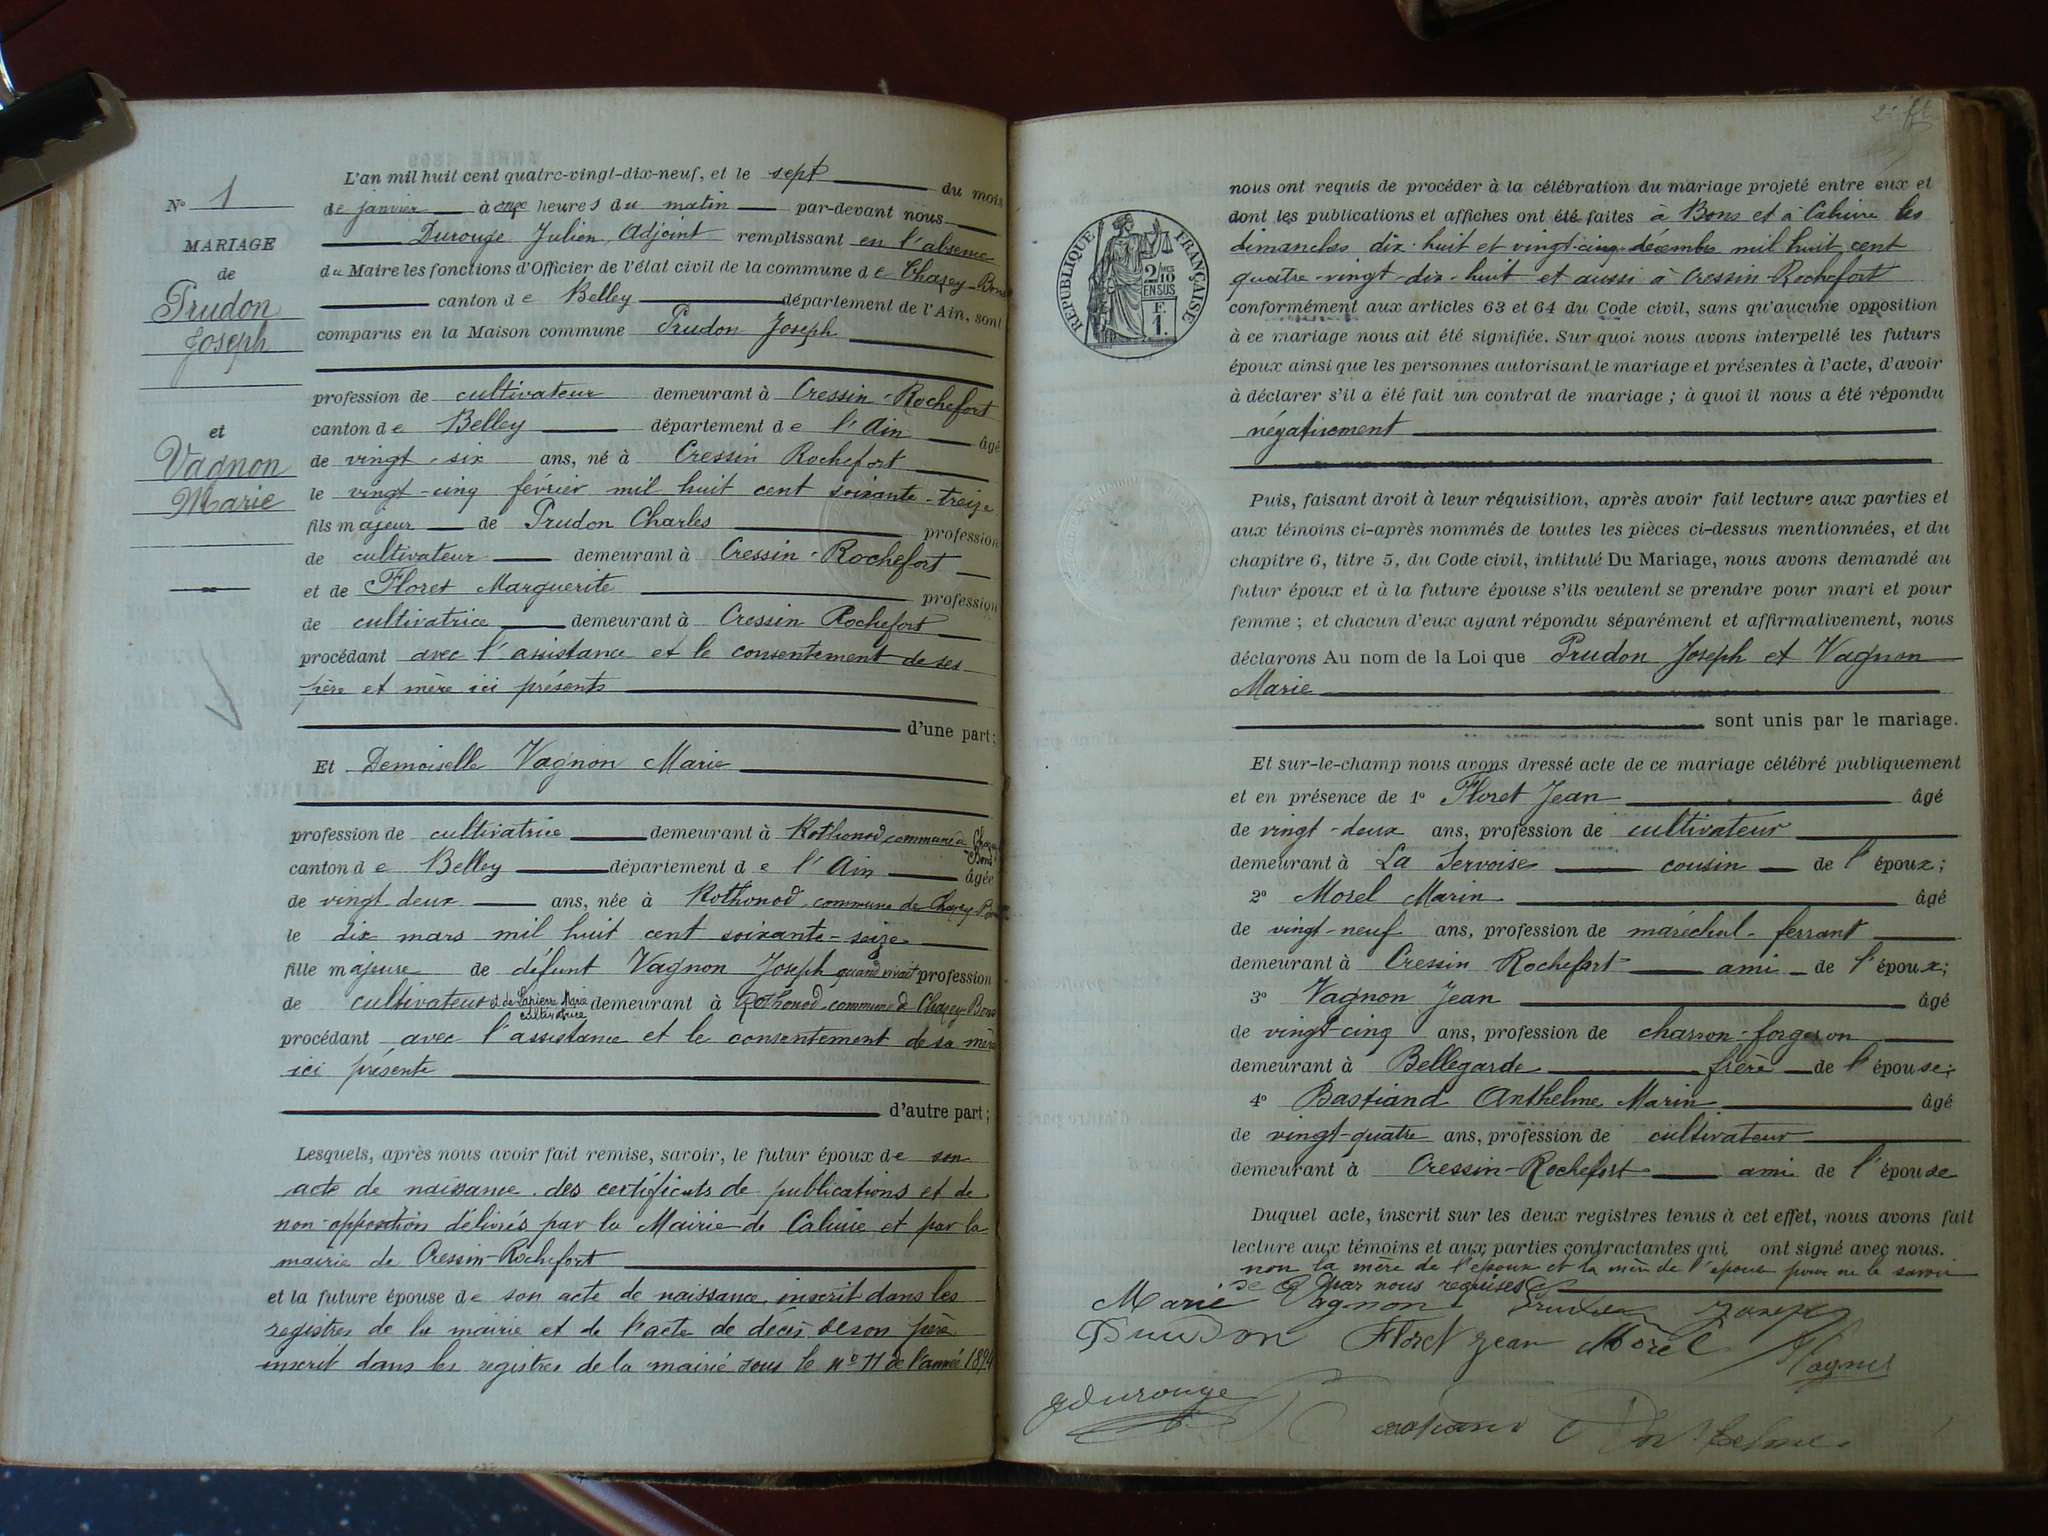 N° 1
MARIAGE
de
Prudon
Joseph
et
Vagnon
Marie
L'an mil huit cent quatre-vingt-dix-neuf, et le sept du mois
de janvier à onze heures du matin par-devant nous
Durouge Julien, Adjoint remplissant en l'absence
du Maire les fonctions d'Officier de l'état civil de la commune de Chazey-Bons
canton de Belley département de l'Ain, sont
comparus en la Maison commune Prudon Joseph
profession de cultivateur demeurant à Cressin-Rochefort
canton de Belley département de l'Ain âgé
de vingt-six ans, né à Cressin Rochefort
le vingt-cinq février mil huit cent soixante-treize
fils majeur de Prudon Charles profession
de cultivateur demeurant à Cressin-Rochefort
et de Floret Marguerite profession
de cultivatrice demeurant à Cressin Rochefort
procédant avec l'assistance et le consentement de ses
père et mère ici présents
d'une part;
Et Demoiselle Vagnon Marie
profession de cultivatrice demeurant à Rothonod commune de Chazey-Bons
canton de Belley département de l'Ain âgée
de vingt deux ans, née à Rothonod, commune de Chazey-Bons
le dix mars mil huit cent soixante-seize
fille majeure de défunt Vagnon Joseph quand vivait profession
de cultivateur et de Marie cultivatrice demeurant à Rothonod, commune de Chazey-Bons
procédant avec l'assistance et le consentement de sa mère
ici présente
d'autre part;
Lesquels, après nous avoir fait remise, savoir, le futur époux de son
acte de naissance, des certificats de publications et de
non-opposition délivrés par la Mairie de et par la
mairie de Cressin-Rochefort
et la future épouse de son acte de naissance, inscrit dans les
registres de la mairie et de l'acte de décès de son père
inscrit dans les registres de la mairie sous le n° 11 de l'année 1894
2e ft
nous ont requis de procéder à la célébration du mariage projeté entre eux et
dont les publications et affiches ont été faites à Bons et à les
dimanches dix-huit et vingt-cinq décembre mil huit cent
quatre-vingt-dix-huit et aussi à Cressin-Rochefort
conformément aux articles 63 et 64 du Code civil, sans qu'aucune opposition
à ce mariage nous ait été signifiée. Sur quoi nous avons interpellé les futurs
époux ainsi que les personnes autorisant le mariage et présentes à l'acte, d'avoir
à déclarer s'il a été fait un contrat de mariage; à quoi il nous a été répondu
négativement
RÉPUBLIQUE FRANÇAISE
2/10 EN SUS
F.
1.
Puis, faisant droit à leur réquisition, après avoir fait lecture aux parties et
aux témoins ci-après nommés de toutes les pièces ci-dessus mentionnées, et du
chapitre 6, titre 5, du Code civil, intitulé Du Mariage, nous avons demandé au
futur époux et à la future épouse s'ils veulent se prendre pour mari et pour
femme; et chacun d'eux ayant répondu séparément et affirmativement, nous
déclarons Au nom de la Loi que Prudon Joseph et Vagnon
Marie
sont unis par le mariage.
Et sur-le-champ nous avons dressé acte de ce mariage célébré publiquement
et en présence de 1° Floret Jean âgé
de vingt-deux ans, profession de cultivateur
demeurant à La Servoise cousin de l'époux;
2° Morel Marin âgé
de vingt-neuf ans, profession de maréchal-ferrant
demeurant à Cressin Rochefort ami de l'époux;
3° Vagnon Jean âgé
de vingt-cinq ans, profession de charron-forgeron
demeurant à Bellegarde frère de l'épouse;
4° Bastiand Anthelme Marin âgé
de vingt-quatre ans, profession de cultivateur
demeurant à Cressin-Rochefort ami de l'épouse
Duquel acte, inscrit sur les deux registres tenus à cet effet, nous avons fait
lecture aux témoins et aux parties contractantes qui ont signé avec nous.
non la mère de l'époux et la mère de l'épouse pour ne le savoir
de ce par nous requises
Marie Vagnon Prudon Joseph
Prudon Floret Jean Morel Vagnon
J Durouge Bastiand Anthelme